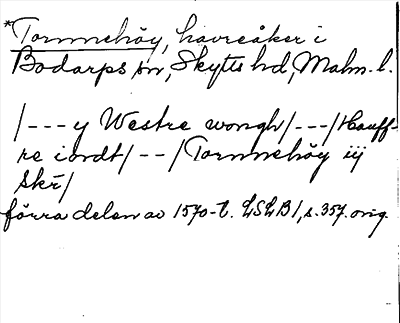 *Tornnehöy, havreåker i
Bodarps sn, Skytts hd, Malm. l.
/---y Westre wongh/---/Hauff-
re iordt/--/Tornnehöy iij
skr/
förra delen av 1570-t. LSLB 1, s. 357. orig.